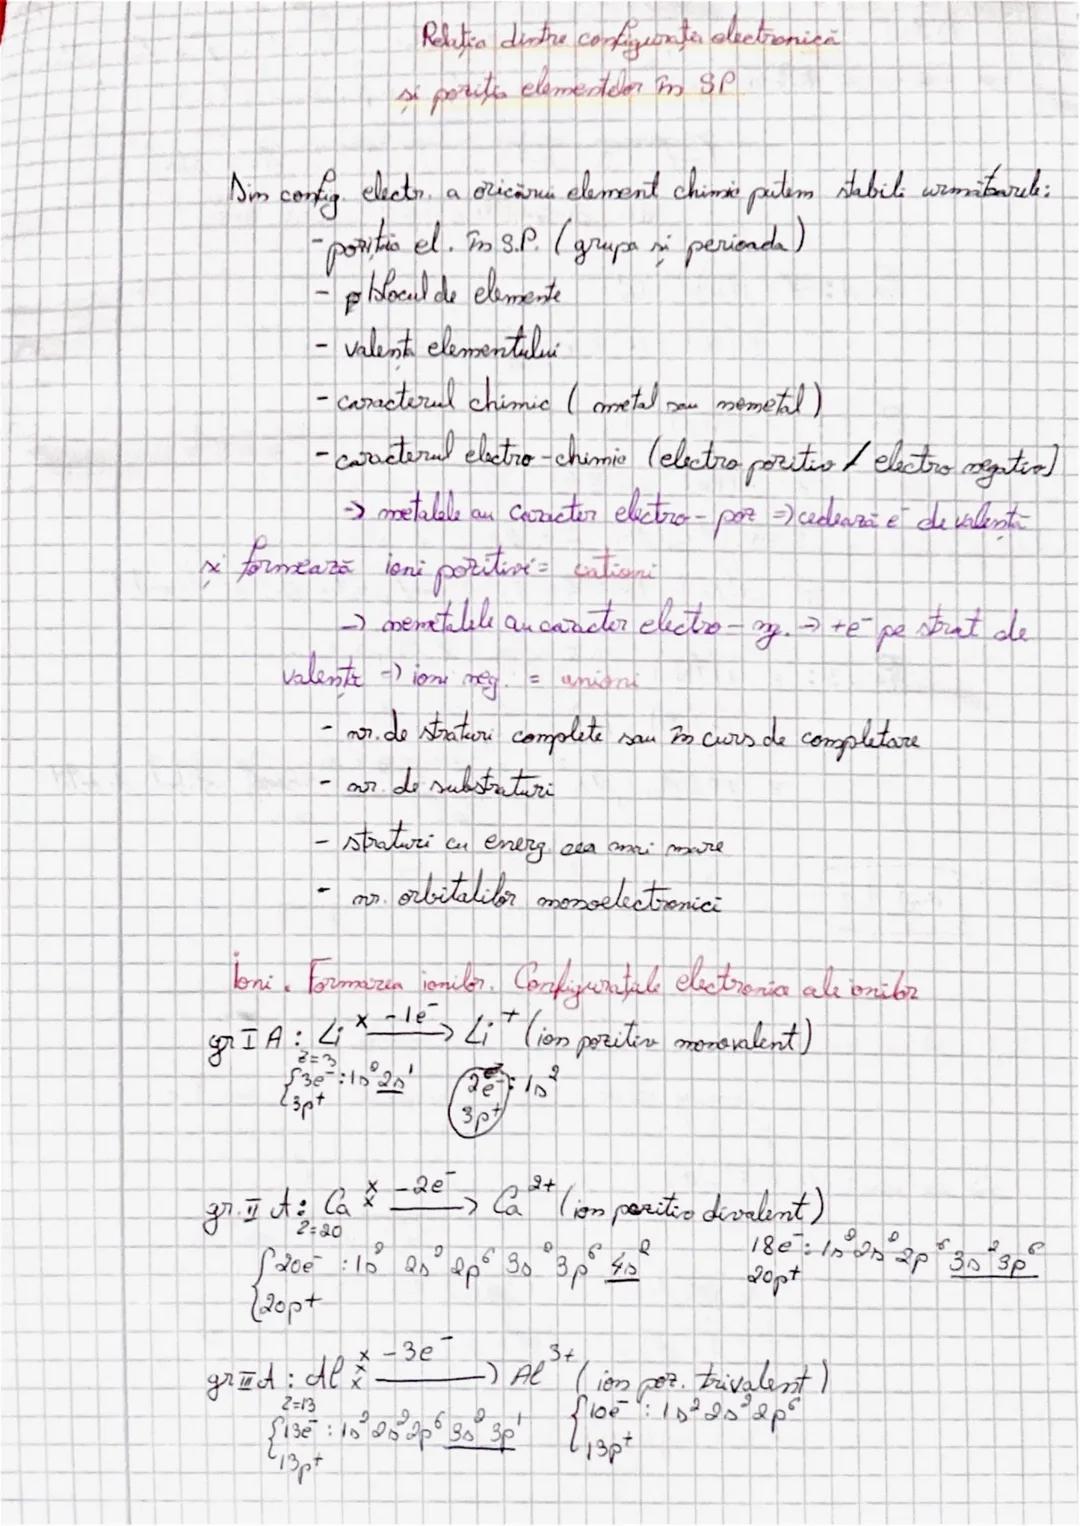 Relația dintre configurația electronică
și poziția elementelor în SP
Din config. electr. a oricărui element chimic putem stabili următoarele:
- poziția el. în S.P. (grupa și perioada)
- blocul de elemente
- valența elementului
- caracterul chimic (metal sau nemetal)
- caracterul electro-chimic (electro pozitiv / electro negativ)
-> metalele au caracter electro-poz => cedează e⁻ de valență
și formează ioni pozitivi = cationi
-> nemetalele au caracter electro-neg. -> +e⁻ pe strat de
valență -> ioni neg. = anioni
- nr. de straturi complete sau în curs de completare
- nr. de substraturi
- straturi cu energ. cea mai mare
- nr. orbitalilor monoelectronici
Ioni. Formarea ionilor. Configurațiile electronice ale ionilor
gr I A : Li ˣ -1e⁻ -> Li⁺ (ion pozitiv monovalent)
Z=3
{3e⁻ : 1s² 2s¹ 2e⁻ : 1s²
{3p⁺ 3p⁺
gr. II A : Ca ˣₓ -2e⁻ -> Ca²⁺ (ion pozitiv divalent)
Z=20
{20e⁻ : 1s² 2s² 2p⁶ 3s² 3p⁶ 4s² 18e⁻ : 1s² 2s² 2p⁶ 3s² 3p⁶
{20p⁺ 20p⁺
gr III A : Al ˣₓₓ -3e⁻ -> Al³⁺ (ion poz. trivalent)
Z=13
{13e⁻ : 1s² 2s² 2p⁶ 3s² 3p¹ {10e⁻ : 1s² 2s² 2p⁶
{13p⁺ {13p⁺